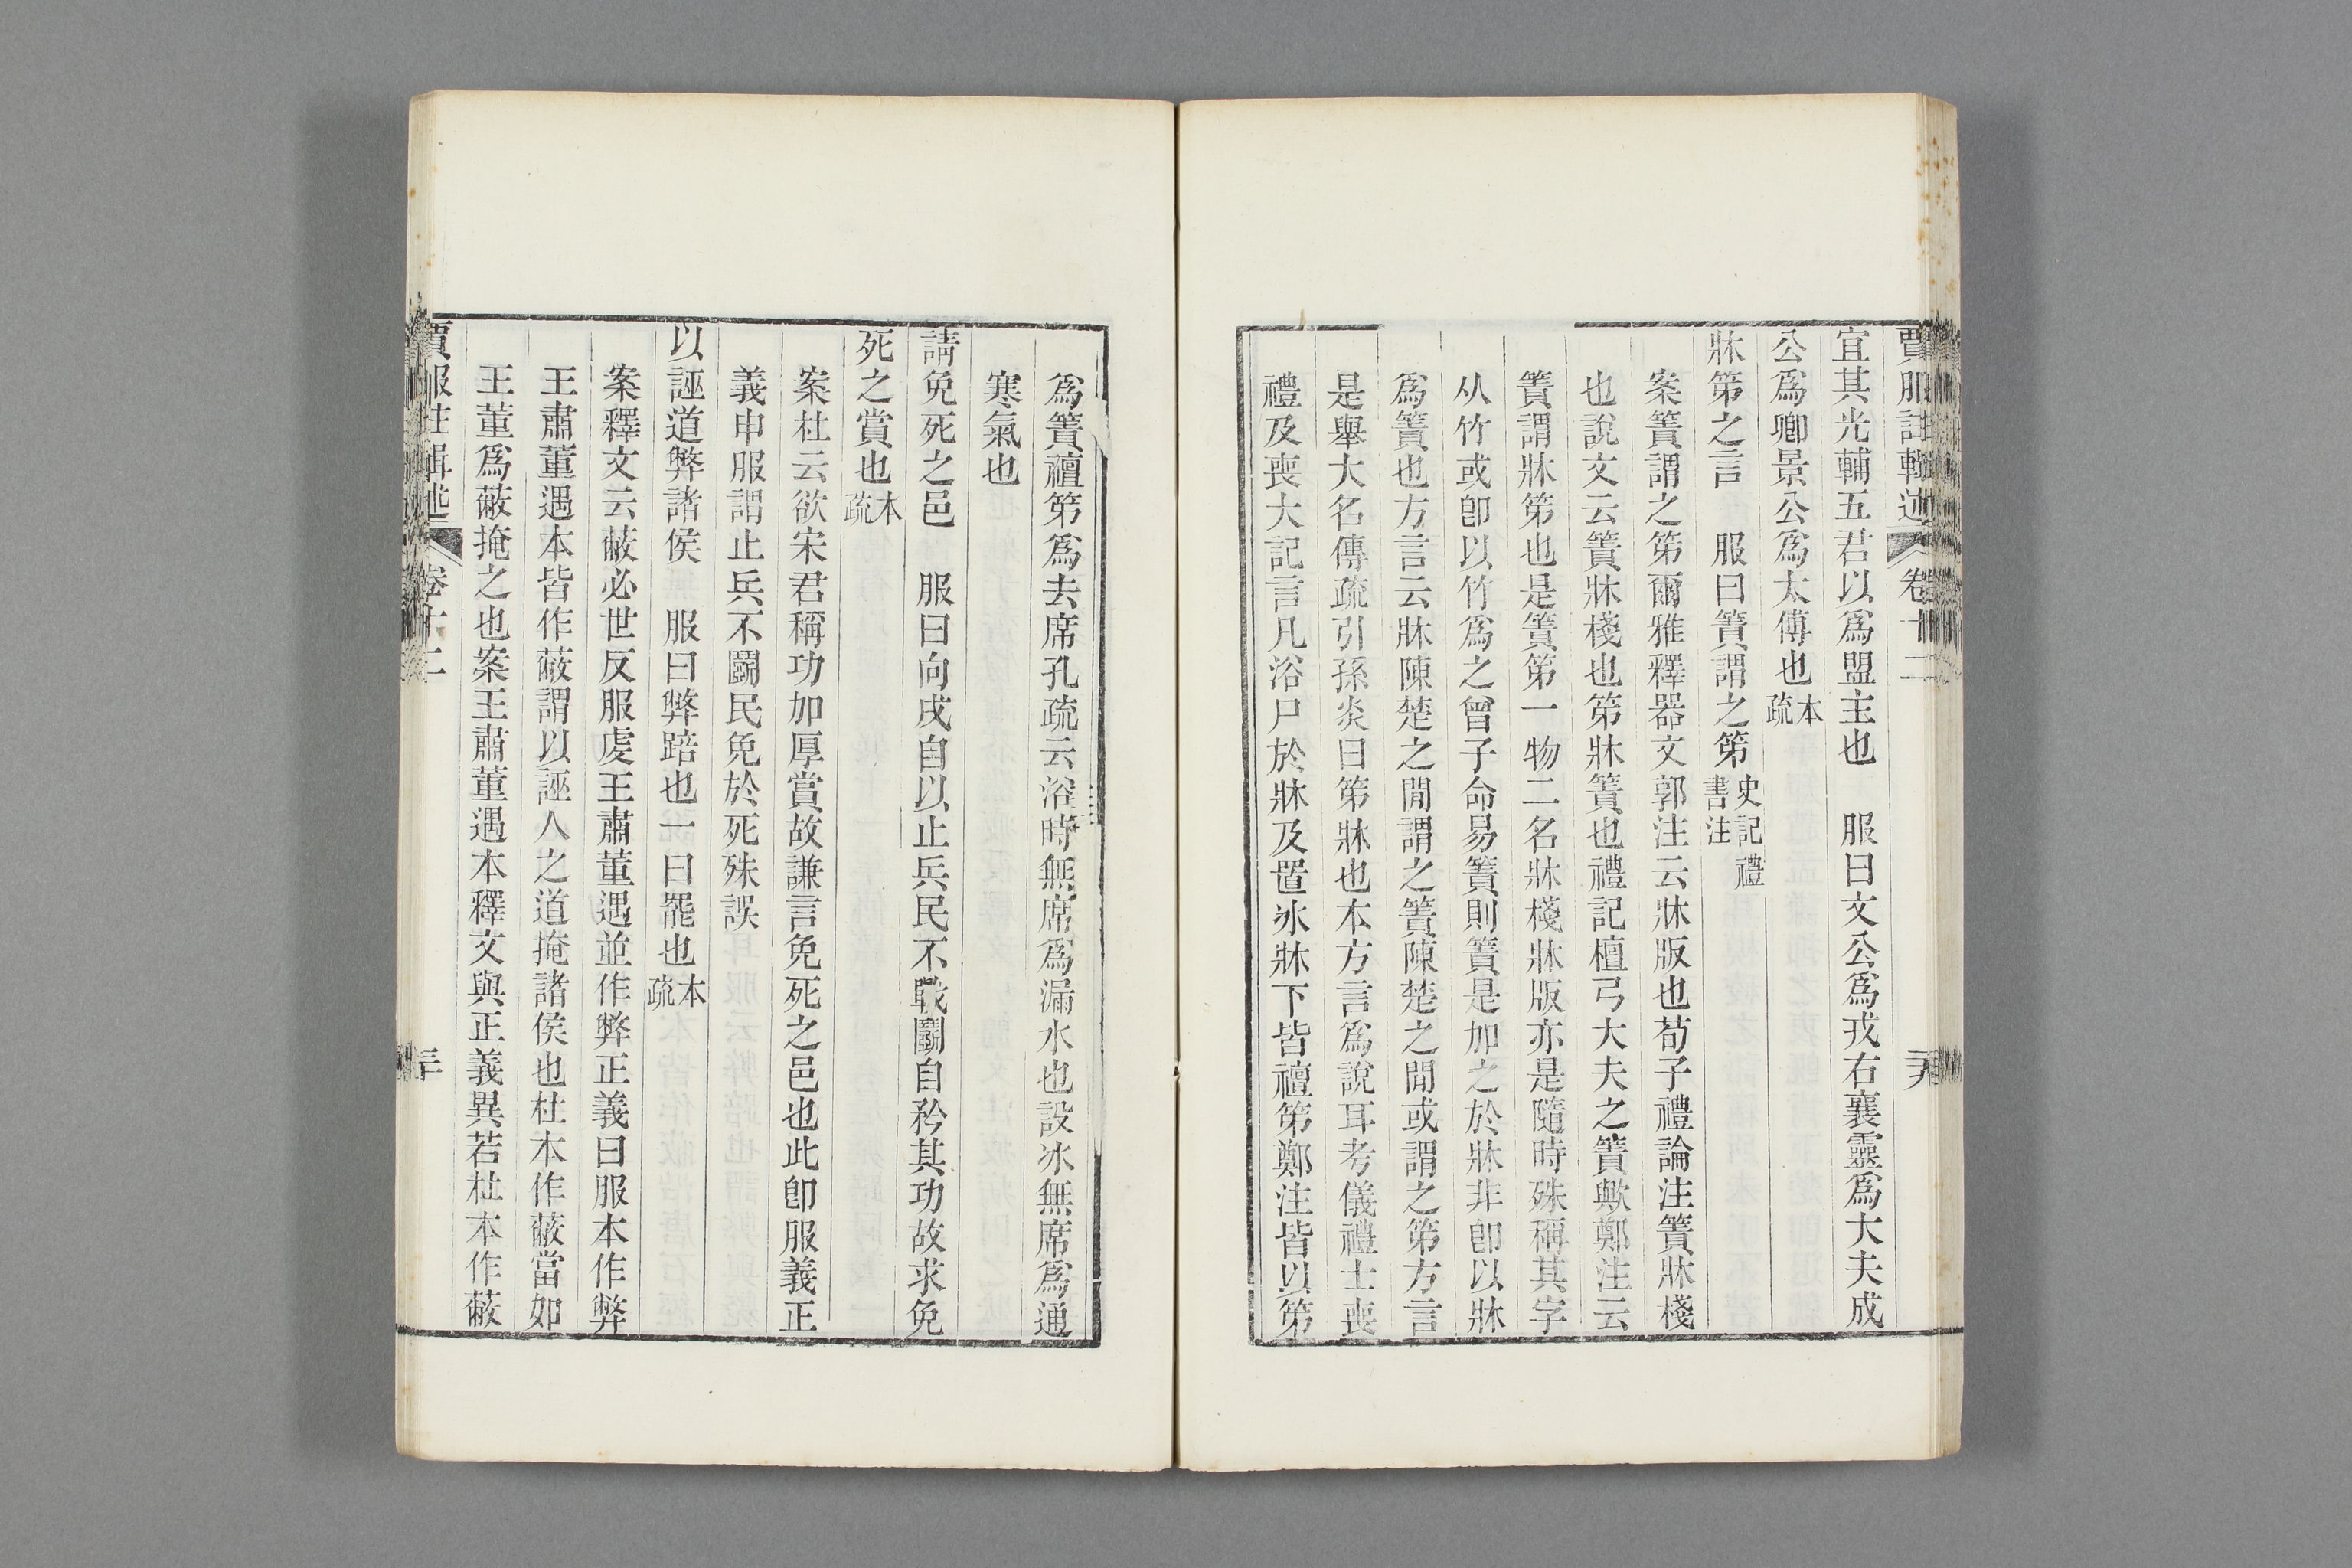 賈服註輯述 卷十二 二十九
宜其光輔五君以爲盟主也　服曰文公爲戎右襄靈爲大夫成
公爲卿景公爲太傅也本疏
牀笫之言　服曰簀謂之笫史記禮書注
案簀謂之笫爾雅釋器文郭注云牀版也荀子禮論注簀牀棧
也說文云簀牀棧也笫牀簀也禮記檀弓大夫之簀歟鄭注云
簀謂牀笫也是簀笫一物二名牀棧牀版亦是隨時殊稱其字
从竹或卽以竹爲之曾子命易簀則簀是加之於牀非卽以牀
爲簀也方言云牀陳楚之閒謂之簀陳楚之閒或謂之笫方言
是舉大名傳疏引孫炎曰笫牀也本方言爲說耳考儀禮士喪
禮及喪大記言凡浴尸於牀及置冰牀下皆襢笫鄭注皆以笫
爲簀襢笫爲去席孔疏云浴時無席爲漏水也設冰無席爲通
寒氣也
請免死之邑　服曰向戌自以止兵民不戰鬭自矜其功故求免
死之賞也本疏
案杜云欲宋君稱功加厚賞故謙言免死之邑也此卽服義正
義申服謂止兵不鬭民免於死殊誤
以誣道弊諸侯　服曰弊踣也一曰罷也本疏
案釋文云蔽必世反服虔王肅董遇並作弊正義曰服本作弊
王肅董遇本皆作蔽謂以誣人之道掩諸侯也杜本作蔽當如
王董爲蔽掩之也案王肅董遇本釋文與正義異若杜本作蔽
賈服註輯述 卷十二 三十